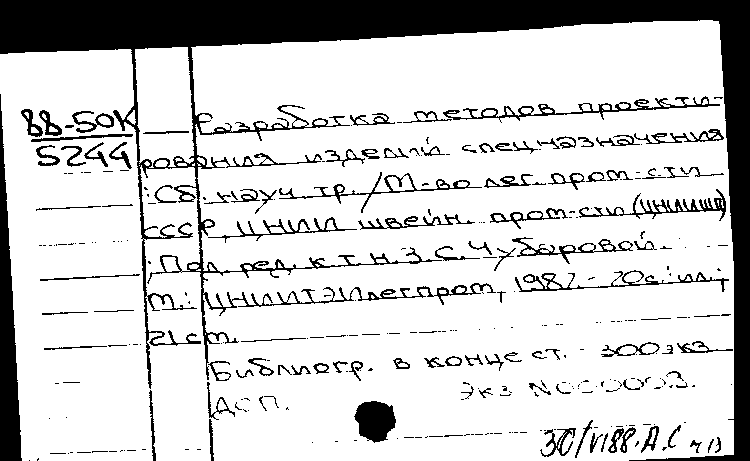 88-50К Разработка методов проекти-
5244 рования изделий спецназначения
: Сб. науч. тр. / М-во лег. пром-сти
СССР, ЦНИИ швейн. пром-сти (ЦНИИШП)
; Под. ред. к.т.н. З.С. Чубаровой. -
М.: ЦНИИТЭИлегпром, 1987. - 70с.: ил.;
21 ст.
Библиогр. в конце ст. - 300 экз
ДСП. Экз N000003.
30/VI88. А.С